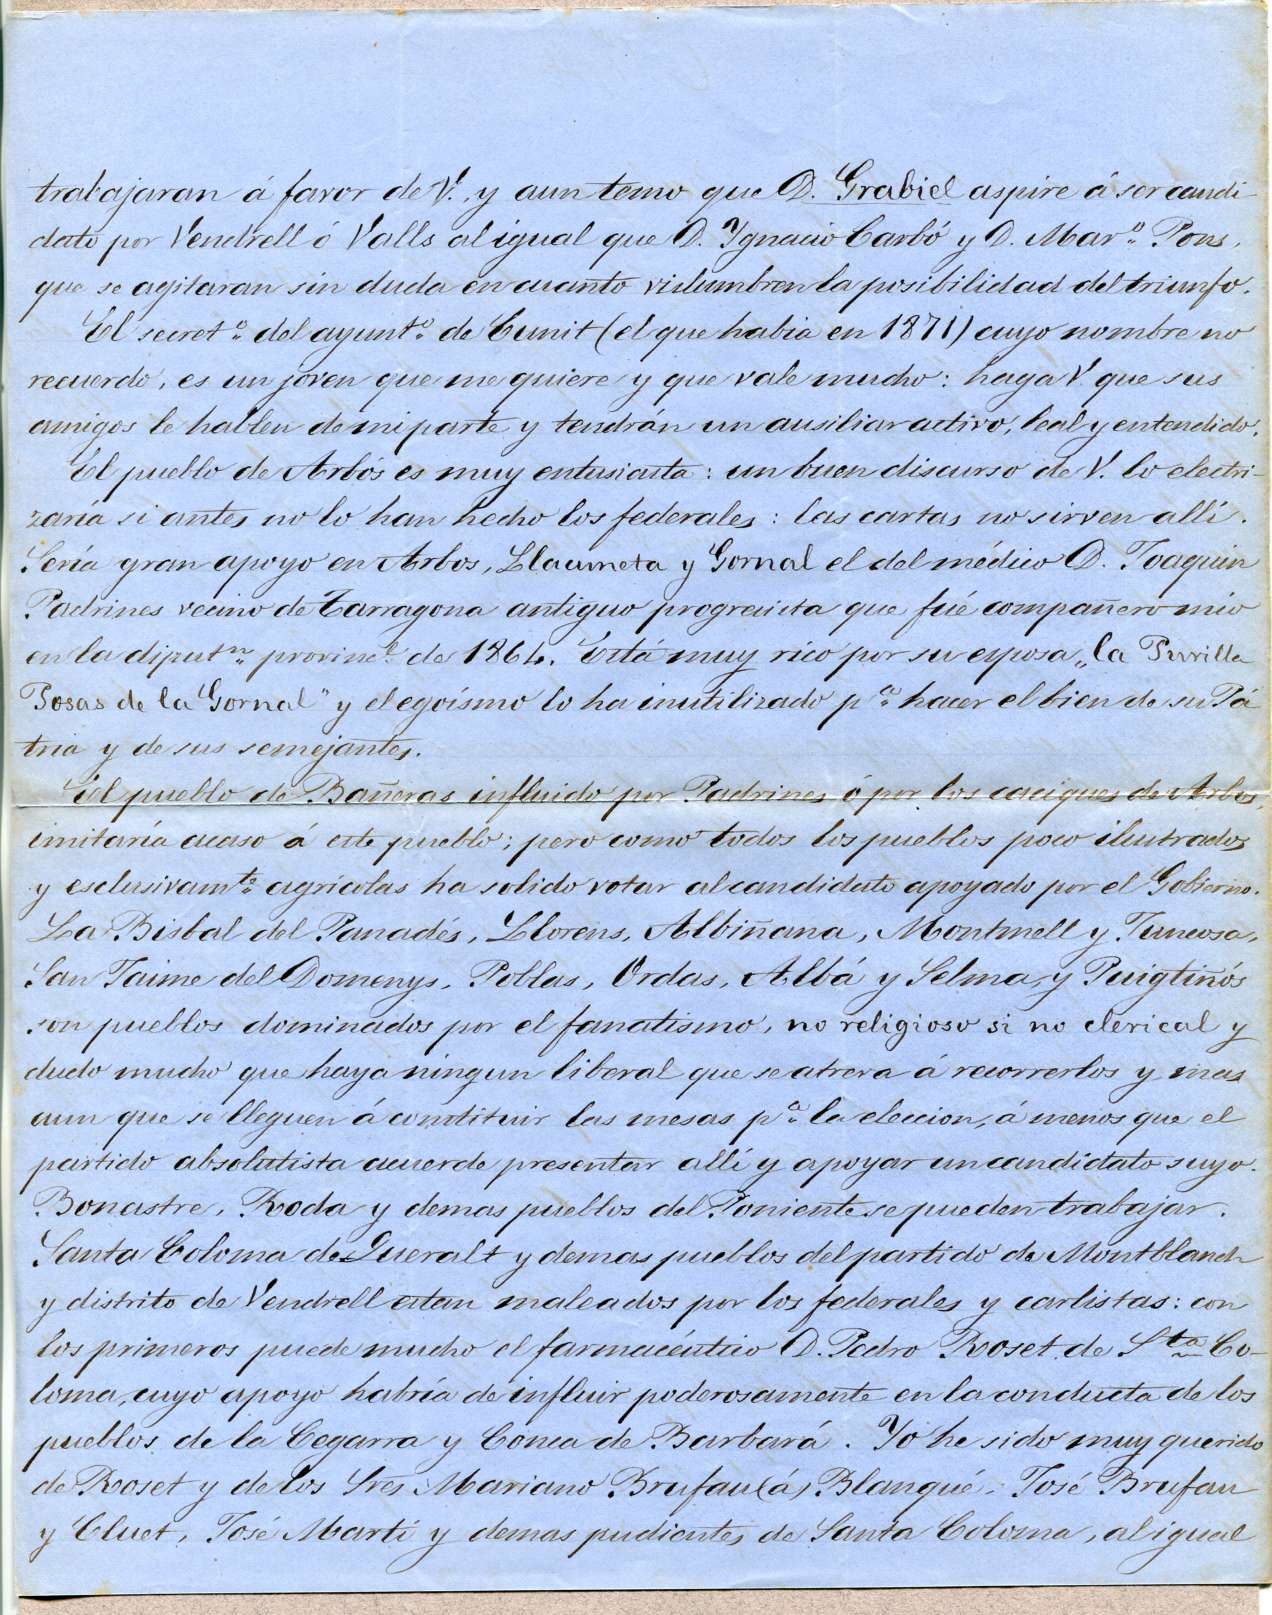 trabajaran á favor de V., y aun temo que D. Grabiel aspire á ser candi-
dato por Vendrell ó Valls al igual que D. Ygnacio Carbó y D. Mar.º Pons,
que se agitaran sin duda en cuanto vislumbren la posibilidad del triunfo.
El secret.º del ayunt.º de Cunit (el que habia en 1871) cuyo nombre no
recuerdo, es un joven que me quiere y que vale mucho: haga V. que sus
amigos le hablen de mi parte y tendrán un ausiliar activo, leal y entendido.
El pueblo de Arbós es muy entusiasta: un buen discurso de V. lo electri-
zaría si antes no lo han hecho los federales: las cartas no sirven allí.
Sería gran apoyo en Arbos, Llacuneta y Gornal el del médico D. Joaquin
Padrines vecino de Tarragona antiguo progresista que fué compañero mio
en la diput.n provinc.l de 1864. Está muy rico por su esposa „la Purilla
Posas de la Gornal" y el egoísmo lo ha inutilizado p.a hacer el bien de su Pá
tria y de sus semejantes.
El pueblo de Bañeras influido por Padrines ó por los caciques de Arbos,
imitaría acaso á este pueblo; pero como todos los pueblos poco ilustrados
y esclusivam.te agrícolas ha solido votar al candidato apoyado por el Gobierno.
La Bisbal del Panadés, Llorens, Albiñana, Montmell y Juncosa,
San Jaime del Domenys, Poblas, Ordas, Albá y Selma, y Puigtiñós
son pueblos dominados por el fanatismo, no religioso si no clerical y
dudo mucho que haya ningun liberal que se atreva á recorrerlos y mas
aun que se lleguen á constituir las mesas p.a la eleccion, á menos que el
partido absolutista acuerde presentar allí y apoyar un candidato suyo.
Bonastre, Roda y demas pueblos del Poniente se pueden trabajar.
Santa Coloma de Queralt y demas pueblos del partido de Montblanch
y distrito de Vendrell estan maleados por los federales y carlistas: con
los primeros puede mucho el farmacéutico D. Pedro Roset de Sta Co-
loma, cuyo apoyo habría de influir poderosamente en la conducta de los
pueblos de la Cegarra y Conca de Barbará. Yo he sido muy querido
de Roset y de los Sres Mariano Brufau (á) Blanqué, José Brufau
y Cluet, José Martí y demas pudientes de Santa Coloma, al igual